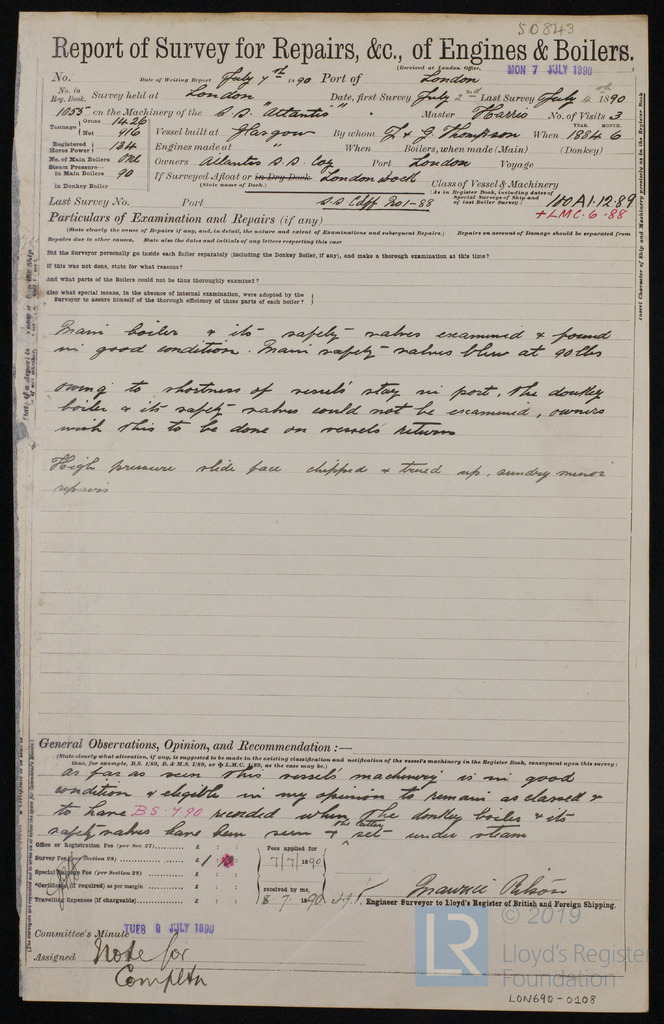 50843
Report of Survey for Repairs, &c., of Engines & Boilers.
(Received at London Office,
MON 7 JULY 1890
No. Date of Writing Report July 7th 1890 Port of London
No. in Rep. Book. Survey held at London Date, first Survey July 2nd Last Survey July 4th 1890
1055 on the Machinery of the S.S. "Atlantis" Master Harris No. of Visits 3
Tonnage Gross 1426 Net 916 Vessel built at Glasgow By whom J & G Thompson When YEAR. MONTH. 1884 6
Registered Horse Power 134 Engines made at " When Boilers, when made (Main) (Donkey)
No. of Main Boilers One Owners Atlantis S.S. Coy Port London Voyage
Steam Pressure in Main Boilers 90 If Surveyed Afloat or in Dry Dock London Dock
(State name of Dock.)
in Donkey Boiler
Class of Vessel & Machinery
(As in Register Book, including dates of Special Surveys of Ship and of last Boiler Survey) 100A1.12.89
+LMC.6.88
Last Survey No. Port S.S. Cdff No1-88
Particulars of Examination and Repairs (if any)
(State clearly the cause of Repairs if any, and, in detail, the nature and extent of Examinations and subsequent Repairs.) Repairs on account of Damage should be separated from
Repairs due to other causes. State also the dates and initials of any letters respecting this case
Did the Surveyor personally go inside each Boiler separately (including the Donkey Boiler, if any), and make a thorough examination at this time?
If this was not done, state for what reasons?
And what parts of the Boilers could not be thus thoroughly examined?
Also what special means, in the absence of internal examination, were adopted by the
Surveyor to assure himself of the thorough efficiency of those parts of each boiler?
Main boiler & its safety valves examined & found
in good condition. Main safety valves blew at 90 lbs
Owing to shortness of vessels stay in port, the donkey
boiler & its safety valves could not be examined, owners
wish this to be done on vessels return
High pressure slide face chipped & trued up, sundry minor
repairs
General Observations, Opinion, and Recommendation :—
(State clearly what alteration, if any, is suggested to be made in the existing classification and notification of the vessel's machinery in the Register Book, consequent upon this survey:
thus, for example, B.S. 1/89, B. & M.S. 1/89, or + L.M.C. 1/89, as the case may be.)
as far as seen this vessels machinery is in good
condition & eligible in my opinion to remain as classed &
to have BS.7.90 recorded when the donkey boiler & its
safety valves have been seen & the latter set under steam
Office or Registration Fee (per Sec. 27)...... £ : :
Survey Fee (per Section 28)
Special Damage Fee (per Section 28)
*Certificate (if required) as per margin
Travelling Expenses (if chargeable)
Fees applied for
7/7/1890
received by me,
8.7.1890
Maurice
Engineer Surveyor to Lloyd's Register of British and Foreign Shipping.
Committee's Minute TUES 8 JULY 1890
Assigned Note for
Completn
© 2019
LR
Lloyd's Register
Foundation
LON690-0108
Insert Character of Ship and Machinery precisely as in the Register Book